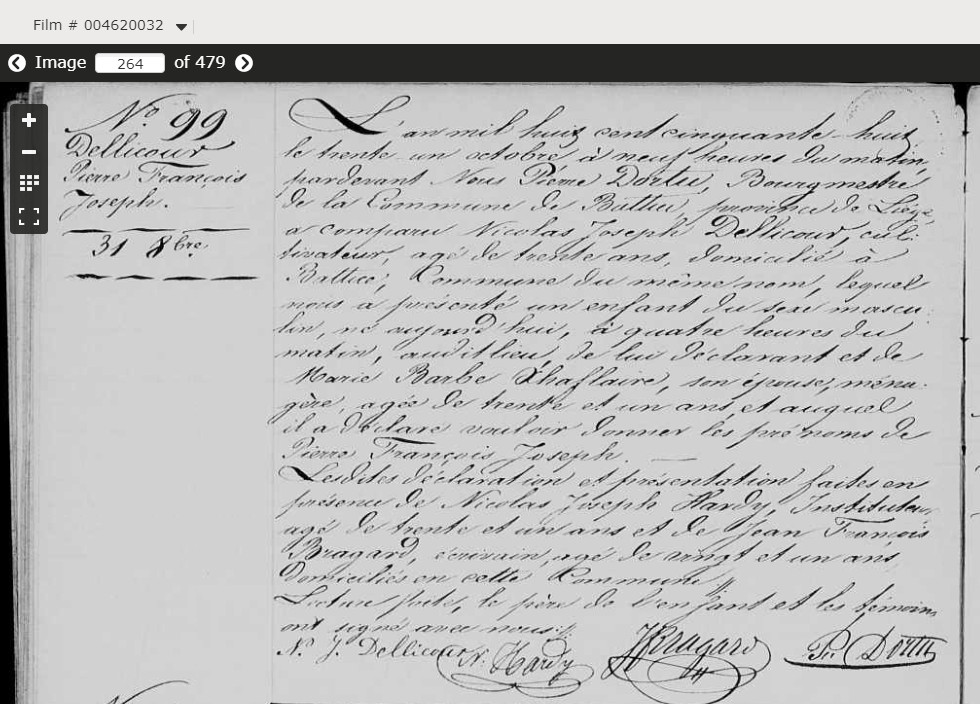 Film # 004620032
Image 264 of 479
N.o 99
Dellicour
Pierre François
Joseph.
31 8bre
L'an mil huit cent cinquante-huit
le trente-un octobre à neuf heures du matin,
pardevant Nous Pierre Dortu, Bourgmestre
de la Commune de Battice, province de Liége,
a comparu Nicolas Joseph Dellicour, cul-
tivateur, agé de trente ans, domicilié à
Battice, Commune du même nom, lequel
nous a présenté un enfant du sexe mascu-
lin, né aujourd'hui, à quatre heures du
matin, audit lieu, de lui déclarant et de
Marie Barbe Xhaflaire, son épouse, ména-
gère, agée de trente et un ans, et auquel
il a déclaré vouloir donner les prénoms de
Pierre François Joseph.
Lesdites déclaration et présentation faites en
présence de Nicolas Joseph Hardy, Instituteur
agé de trente et un ans et de Jean François
Bragard, écrivain, agé de vingt et un ans,
domiciliés en cette Commune.
Lecture faite, le père de l'enfant et les témoins
ont signé avec nous.
N. J. Dellicour N. Hardy JfBragard P. Dortu